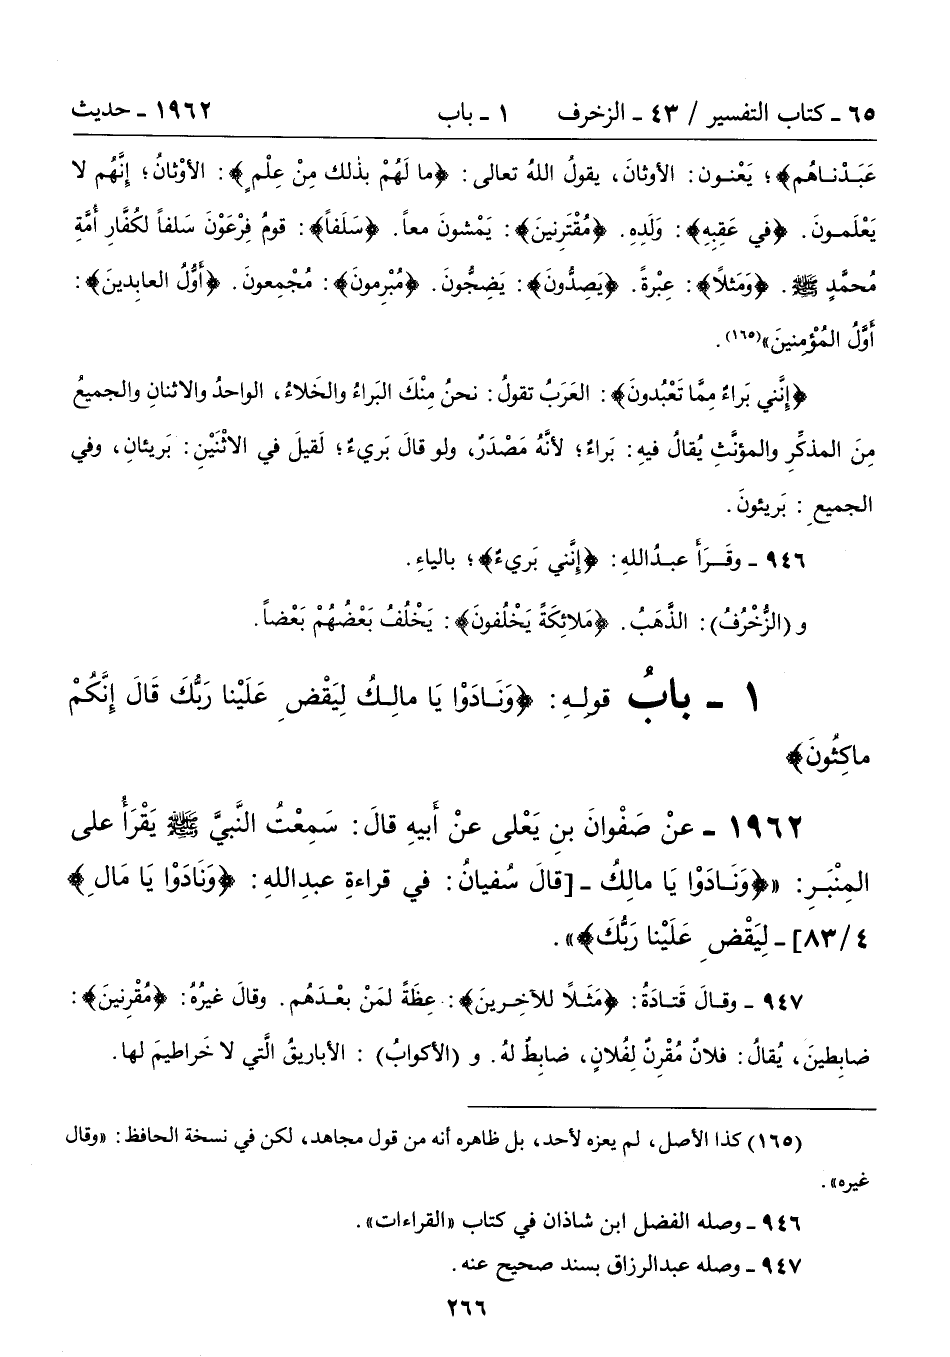 ٦٥ - كتاب التفسير / ٤٣ - الزخرف ١ - باب ١٩٦٢ - حديث
عَبَدْناهُم﴾؛ يَعْنون: الأوثانَ، يقولُ اللهُ تعالى: ﴿ما لَهُمْ بذٰلك مِنْ عِلْمٍ﴾: الأوْثانُ؛ إنَّهُم لا
يَعْلَمونَ. ﴿في عَقِبِهِ﴾: وَلَدِهِ. ﴿مُقْتَرِنينَ﴾: يَمْشونَ معاً. ﴿سَلَفاً﴾: قومُ فِرْعَوْنَ سَلفاً لكُفَّارِ أُمَّةِ
مُحمَّدٍ ﷺ. ﴿وَمَثلاً﴾: عِبْرةً. ﴿يَصِدُّونَ﴾: يَضِجُّونَ. ﴿مُبْرِمونَ﴾: مُجْمِعونَ. ﴿أَوَّلُ العابدينَ﴾:
أَوَّلُ المُؤْمِنينَ»(١٦٥).
﴿إنَّني بَراءٌ مِمَّا تَعْبُدونَ﴾: العَرَبُ تقولُ: نحنُ مِنْكَ البَراءُ والخَلاءُ، الواحدُ والاثنانِ والجميعُ
مِنَ المذكَّرِ والمؤنَّثِ يُقالُ فيهِ: بَراءٌ؛ لأنَّهُ مَصْدَرٌ، ولو قالَ بَريءٌ؛ لَقيلَ في الاثْنَيْنِ: بَريئانِ، وفي
الجميعِ: بَريئونَ.
٩٤٦ - وقَرَأَ عبدُاللهِ: ﴿إنَّني بَريءٌ﴾؛ بالياءِ.
و (الزُّخْرُفُ): الذَّهَبُ. ﴿مَلائِكَةً يَخْلُفونَ﴾: يَخْلُفُ بَعْضُهُمْ بَعْضاً.
١ - بابُ قولِهِ: ﴿وَنَادَوْا يَا مالِكُ لِيَقْضِ عَلَيْنا رَبُّكَ قَالَ إنَّكُمْ
ماكِثُونَ﴾
١٩٦٢ - عنْ صَفْوانَ بنِ يَعْلى عنْ أَبيهِ قالَ: سَمِعْتُ النَّبيَّ ﷺ يَقْرَأُ على
المِنْبَرِ: «﴿وَنَادَوْا يَا مالِكُ - [قالَ سُفيانُ: في قراءةِ عبدِاللهِ: ﴿وَنَادَوْا يَا مَالِ﴾
٨٣/٤] - لِيَقْضِ عَلَيْنا رَبُّكَ﴾».
٩٤٧ - وقالَ قَتادَةُ: ﴿مَثَلًا للآخِرينَ﴾: عِظَةً لمَنْ بعْدَهُم. وقالَ غيرُهُ: ﴿مُقْرِنينَ﴾:
ضابِطينَ، يُقالُ: فلانٌ مُقْرِنٌ لِفُلانٍ، ضابِطٌ لهُ. و (الأكوابُ): الأباريقُ الَّتي لا خَراطيمَ لها.
(١٦٥) كذا الأصل، لم يعزه لأحد، بل ظاهره أنه من قول مجاهد، لكن في نسخة الحافظ: «وقال
غيره».
٩٤٦ - وصله الفضل ابن شاذان في كتاب «القراءات».
٩٤٧ - وصله عبدالرزاق بسند صحيح عنه.
٢٦٦